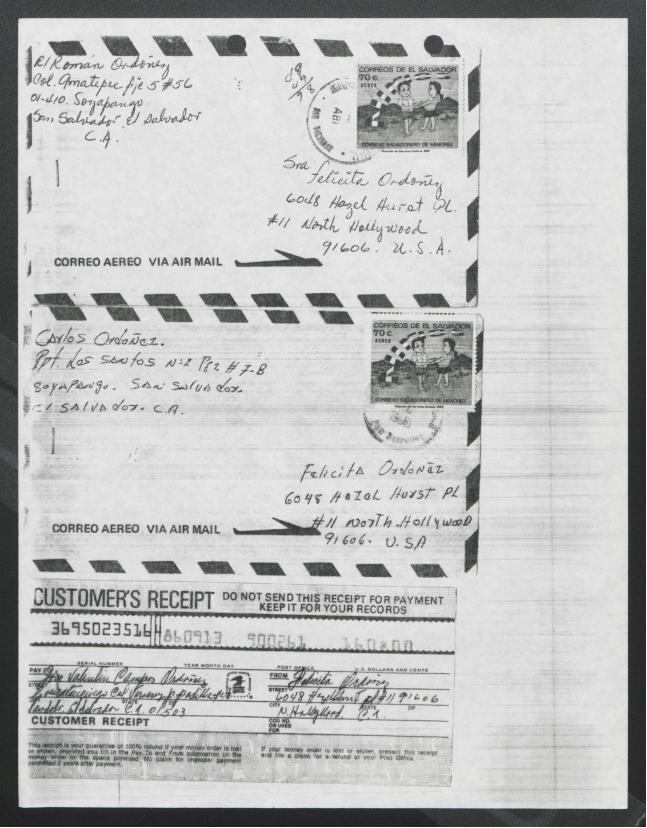 R/Román Ordóñez
Col. Amatepec pje 5 #56
01-410. Soyapango
San Salvador, El Salvador
C.A.
CORREOS DE EL SALVADOR
70 c.
AEREO
CONSEJO SALVADOREÑO DE MENORES
ABI
SAN SALVADOR
Sra
Felicita Ordóñez
6048 Hazel Hurst PL.
#11 North Hollywood
91606. U.S.A.
CORREO AEREO VIA AIR MAIL
Carlos Ordóñez.
Ppt. Los SANTOS Nº2 P82 # 7-B
SOYAPANgo. SAN SALVAdoR
El SALVAdoR. C.A.
CORREOS DE EL SALVADOR
70 c.
AEREO
CONSEJO SALVADOREÑO DE MENORES
Felicita Ordoñez
6048 Hazel Hurst PL
#11 North. Hollywood
91606. U.S.A
CORREO AEREO VIA AIR MAIL
CUSTOMER'S RECEIPT DO NOT SEND THIS RECEIPT FOR PAYMENT
KEEP IT FOR YOUR RECORDS
36950235164 860913 900261 160*00
SERIAL NUMBER YEAR MONTH DAY POST OFFICE U.S. DOLLARS AND CENTS
PAY TO Jose Valentin Campos Ordoñez FROM Felicita Ordoñez
STREET STREET 6048 Hazelhurst pl #11 91606
STATE CITY N. Hollywood STATE Ca. ZIP
El Salvador C.A. 01503
CUSTOMER RECEIPT COD NO. OR USED FOR
This receipt is your guarantee of 100% refund if your money order is lost
or stolen, provided you fill in the Pay To and From information on the
money order in the space provided. No claim for improper payment
permitted 2 years after payment.
If your money order is lost or stolen, present this receipt
and file a claim for a refund at your Post Office.